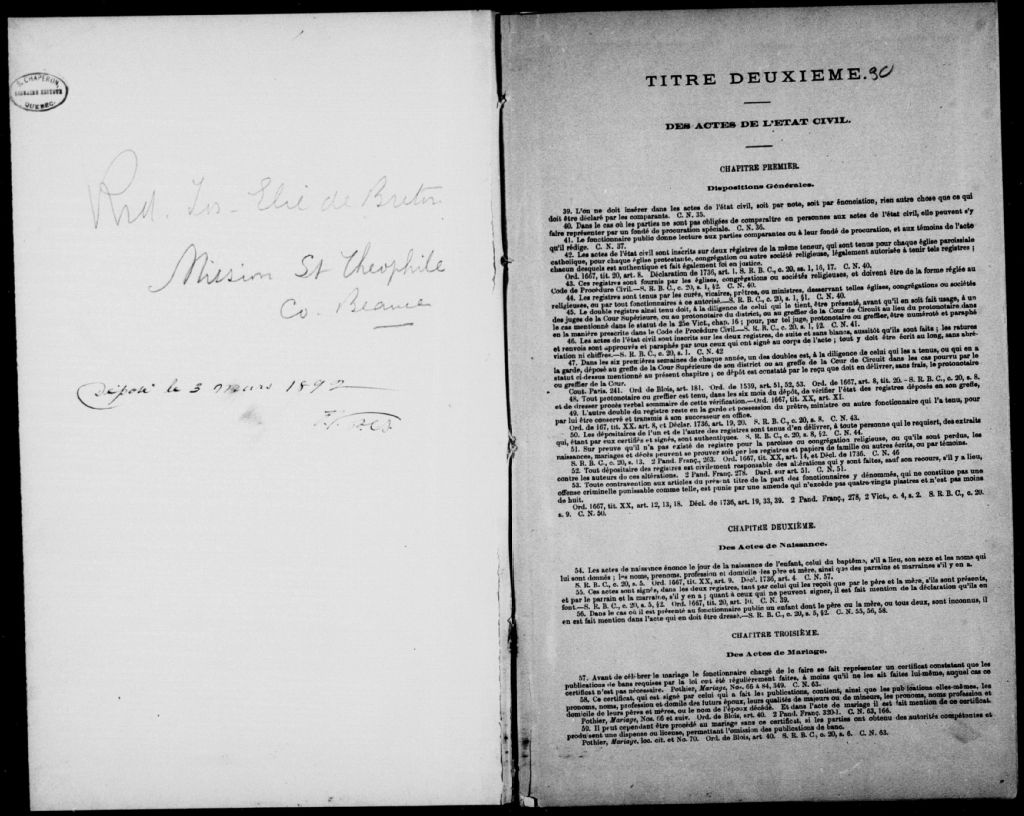 CHAPERON,
LIBRAIRE EDITEUR
QUEBEC.
Elie de
Mission St Theophile
Co. Beauce
Déposé le 3 mars 189
TITRE DEUXIEME. 30
DES ACTES DE L'ETAT CIVIL.
CHAPITRE PREMIER.
Dispositions Générales.
39. L'on ne doit insérer dans les actes de l'état civil, soit par note, soit par énonciation, rien autre chose que ce qui
doit être déclaré par les comparants. C. N. 35.
40. Dans le cas où les parties ne sont pas obligées de comparaître en personnes aux actes de l'état civil, elle peuvent s'y
faire représenter par un fondé de procuration spéciale. C. N. 36.
41. Le fonctionnaire public donne lecture aux parties comparantes ou à leur fondé de procuration, et aux témoins de l'acte
qu'il rédige. C. N. 37.
42. Les actes de l'état civil sont inscrits sur deux régistres de la même teneur, qui sont tenus pour chaque église paroissiale
catholique, pour chaque église protestante, congrégation ou autre société religieuse, légalement autorisée à tenir tels registres ;
chacun desquels est authentique et fait également foi en justice.
Ord. 1667, tit. 20, art. 8. Déclaration de 1736, art. 1. S. R. B. C., c. 20, ss. 1, 16, 17. C. N. 40.
43. Ces registres sont fournis par les églises, congrégations ou sociétés religieuses, et doivent être de la forme réglée au
Code de Procédure Civil.—S. R. B. C., c. 20, s. 1, §2. C. N. 40.
44. Les registres sont tenus par les curés, vicaires, prêtres, ou ministres, desservant telles églises, congrégations ou sociétés
religieuses, ou par tout fonctionnaires à ce autorisé.—S. R. B. C., c. 20, s. 1, §1. C. N. 40.
45. Le double registre ainsi tenu doit, à la diligence de celui qui le tient, être présenté, avant qu'il en soit fait usage, à un
des juges de la Cour Supérieure, ou au protonotaire du district, ou au greffier de la Cour de Circuit au lieu du protonotaire dans
le cas mentionné dans le statut de la 25e Vict., chap. 16 ; pour, par tel juge, protonotaire ou greffier, être numéroté et paraphé
en la manière prescrite dans le Code de Procédure Civil.—S. R. B. C., c. 20, s. 1, §2. C. N. 41.
46. Les actes de l'état civil sont inscrits sur les deux registres, de suite et sans blancs, aussitôt qu'ils sont faits ; les ratures
et renvois sont approuvés et paraphés par tous ceux qui ont signé au corps de l'acte ; tout y doit être écrit au long, sans abré-
viation ni chiffres.—S. R. B. C., c. 20, s. 1. C. N. 42
47. Dans les six premières semaines de chaque année, un des doubles est, à la diligence de celui qui les a tenus, ou qui en a
la garde, déposé au greffe de la Cour Supérieure de son district ou au greffe de la Cour de Circuit dans les cas pourvu par le
statut ci-dessus mentionné au présent chapitre ; ce dépôt est constaté par le reçu que doit en délivrer, sans frais, le protonotaire
ou greffier de la Cour.
Cout. Paris. 241. Ord de Blois, art. 181. Ord. de 1539, art. 51, 52, 53. Ord. de 1667, art. 8, tit. 20.—S. R. B. C., c. 20, s. 8.
48. Tout protonotaire ou greffier est tenu, dans les six mois du dépôt, de vérifier l'état des registres déposés en son greffe,
et de dresser procès verbal sommaire de cette vérification.—Ord. 1667, tit. XX, art. XI.
49. L'autre double du registre reste en la garde et possession du prêtre, ministre ou autre fonctionnaire qui l'a tenu, pour
par lui être conservé et transmis à son successeur en office.
Ord. de 167, tit. XX. art. 8, et Déclar. 1736, art. 19, 20. S. R. B. C., c. 20, s. 8. C. N. 43.
50. Les dépositaires de l'un et de l'autre des registres sont tenus d'en délivrer, à toute personne qui le requiert, des extraits
qui, étant par eux certifiés et signés, sont authentiques. S. R. B. C., c. 20, s. 8, §2. C. N. 44.
51. Sur preuve qu'il n'a pas existé de registre pour la paroisse ou congrégation religieuse, ou qu'ils sont perdus, les
naissances, mariages et décès peuvent se prouver soit par les registres et papiers de famille ou autres écrits, ou par témoins.
S. R. B. C., c. 20, s. 13. 2 Pand. Franç., 263. Ord. 1667, tit. XX, art. 14, et Décl. de 1736. C. N. 46
52. Tout dépositaire des registres est civilement responsable des altérations qui y sont faites, sauf son recours, s'il y a lieu,
contre les auteurs de ces altérations. 2 Pand. Franç. 278. Dard. sur art. 51. C. N. 51.
53. Toute contravention aux articles du présent titre de la part des fonctionnaires y dénommés, qui ne constitue pas une
offense criminelle punissable comme telle, est punie par une amende qui n'excède pas quatre-vingts piastres et n'est pas moins
de huit.
Ord. 1667, tit. XX, art. 12, 13, 18. Décl. de 1736, art. 19, 33, 39. 2 Pand. Franç., 278, 2 Vict., c. 4, s. 2. S. R. B. C., c. 20.
s. 9. C. N. 50.
CHAPITRE DEUXIÈME.
Des Actes de Naissance.
54. Les actes de naissance énonce le jour de la naissance de l'enfant, celui du baptême, s'il a lieu, son sexe et les noms qui
lui sont donnés ; les noms, prenoms, profession et domicile des père et mère, ainsi que des parrains et marraines s'il y en a.
S. R. B. C., c. 20, s. 5. Ord. 1667, tit. XX, art. 9. Decl. 1736, art. 4. C. N. 57.
55. Ces actes sont signés, dans les deux registres, tant par celui qui les reçoit que par le père et la mère, s'ils sont présents,
et par le parrain et la marraine, s'il y en a ; quant à ceux qui ne peuvent signer, il est fait mention de la déclaration qu'ils en
font.—S. R. B. C., c. 20, s. 5, §2. Ord. 1667, tit. 20, art. 10. C. N. 39.
56. Dans le cas où il est présenté au fonctionnaire public un enfant dont le père ou la mère, ou tous deux, sont inconnus, il
en est fait mention dans l'acte qui en doit être dressé.—S. R. B. C., c. 20, s. 5, §2. C. N. 55, 56, 58.
CHAPITRE TROISIÈME.
Des Actes de Mariage.
57. Avant de célébrer le mariage le fonctionnaire chargé de le faire se fait représenter un certificat constatant que les
publications de bans requises par la loi ont été régulièrement faites, à moins qu'il ne les ait faites lui-même, auquel cas ce
certificat n'est pas nécessaire. Pothier, Mariage, Nos. 66 à 84, 349. C. N. 63.
58. Ce certificat, qui est signé par celui qui a fait les publications, contient, ainsi que les publications elles-mêmes, les
prenoms, noms, profession et domile des futurs époux, leurs qualités de majeurs ou de mineurs, les pronoms, noms profession et
domicile de leurs pères et mères, ou le nom de l'époux décédé. Et dans l'acte de mariage il est fait mention de ce certificat.
Pothier, Mariage, Nos. 66 et suiv. Ord. de Blois, art. 40. 2 Pand. Franç. 320-1. C. N. 63, 166.
59. Il peut cependant être procédé au mariage sans ce certificat, si les parties ont obtenu des autorités compétentes et
produisent une dispense ou license, permettant l'omission des publications de banc.
Pothier, Mariage, loc. cit. et No. 70. Ord. de Blois, art. 40. S. R. B. C., c. 20, s. 6. C. N. 63.